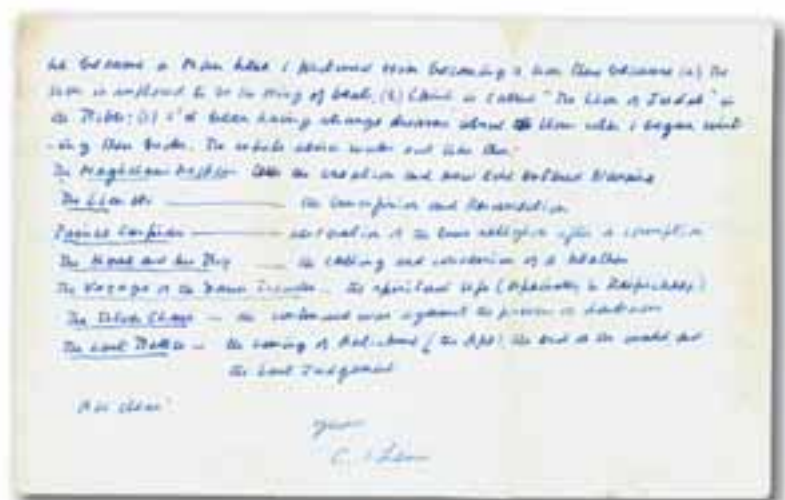 he became a Man here I pictured Him becoming a Lion there because (a) The
Lion is supposed to be the King of beasts, (b) Christ is called "The Lion of Judah" in
the Bible; (c) I'd been having strange dreams about lions when I began writ-
-ing the books. The whole series works out like this.
The Magician's Nephew the creation and how Evil entered Narnia
The Lion etc ——— the Crucifixion and Resurrection
Prince Caspian ——— restoration of the true religion after a corruption
The Horse and his Boy —— the calling and conversion of a heathen
The Voyage of the Dawn Treader — the spiritual life (especially in Reepicheep)
The Silver Chair — the continued war against the powers of darkness
The Last Battle — the coming of Antichrist (the Ape), the end of the world and
the Last Judgement
All clear?
yours
C. S. Lewis